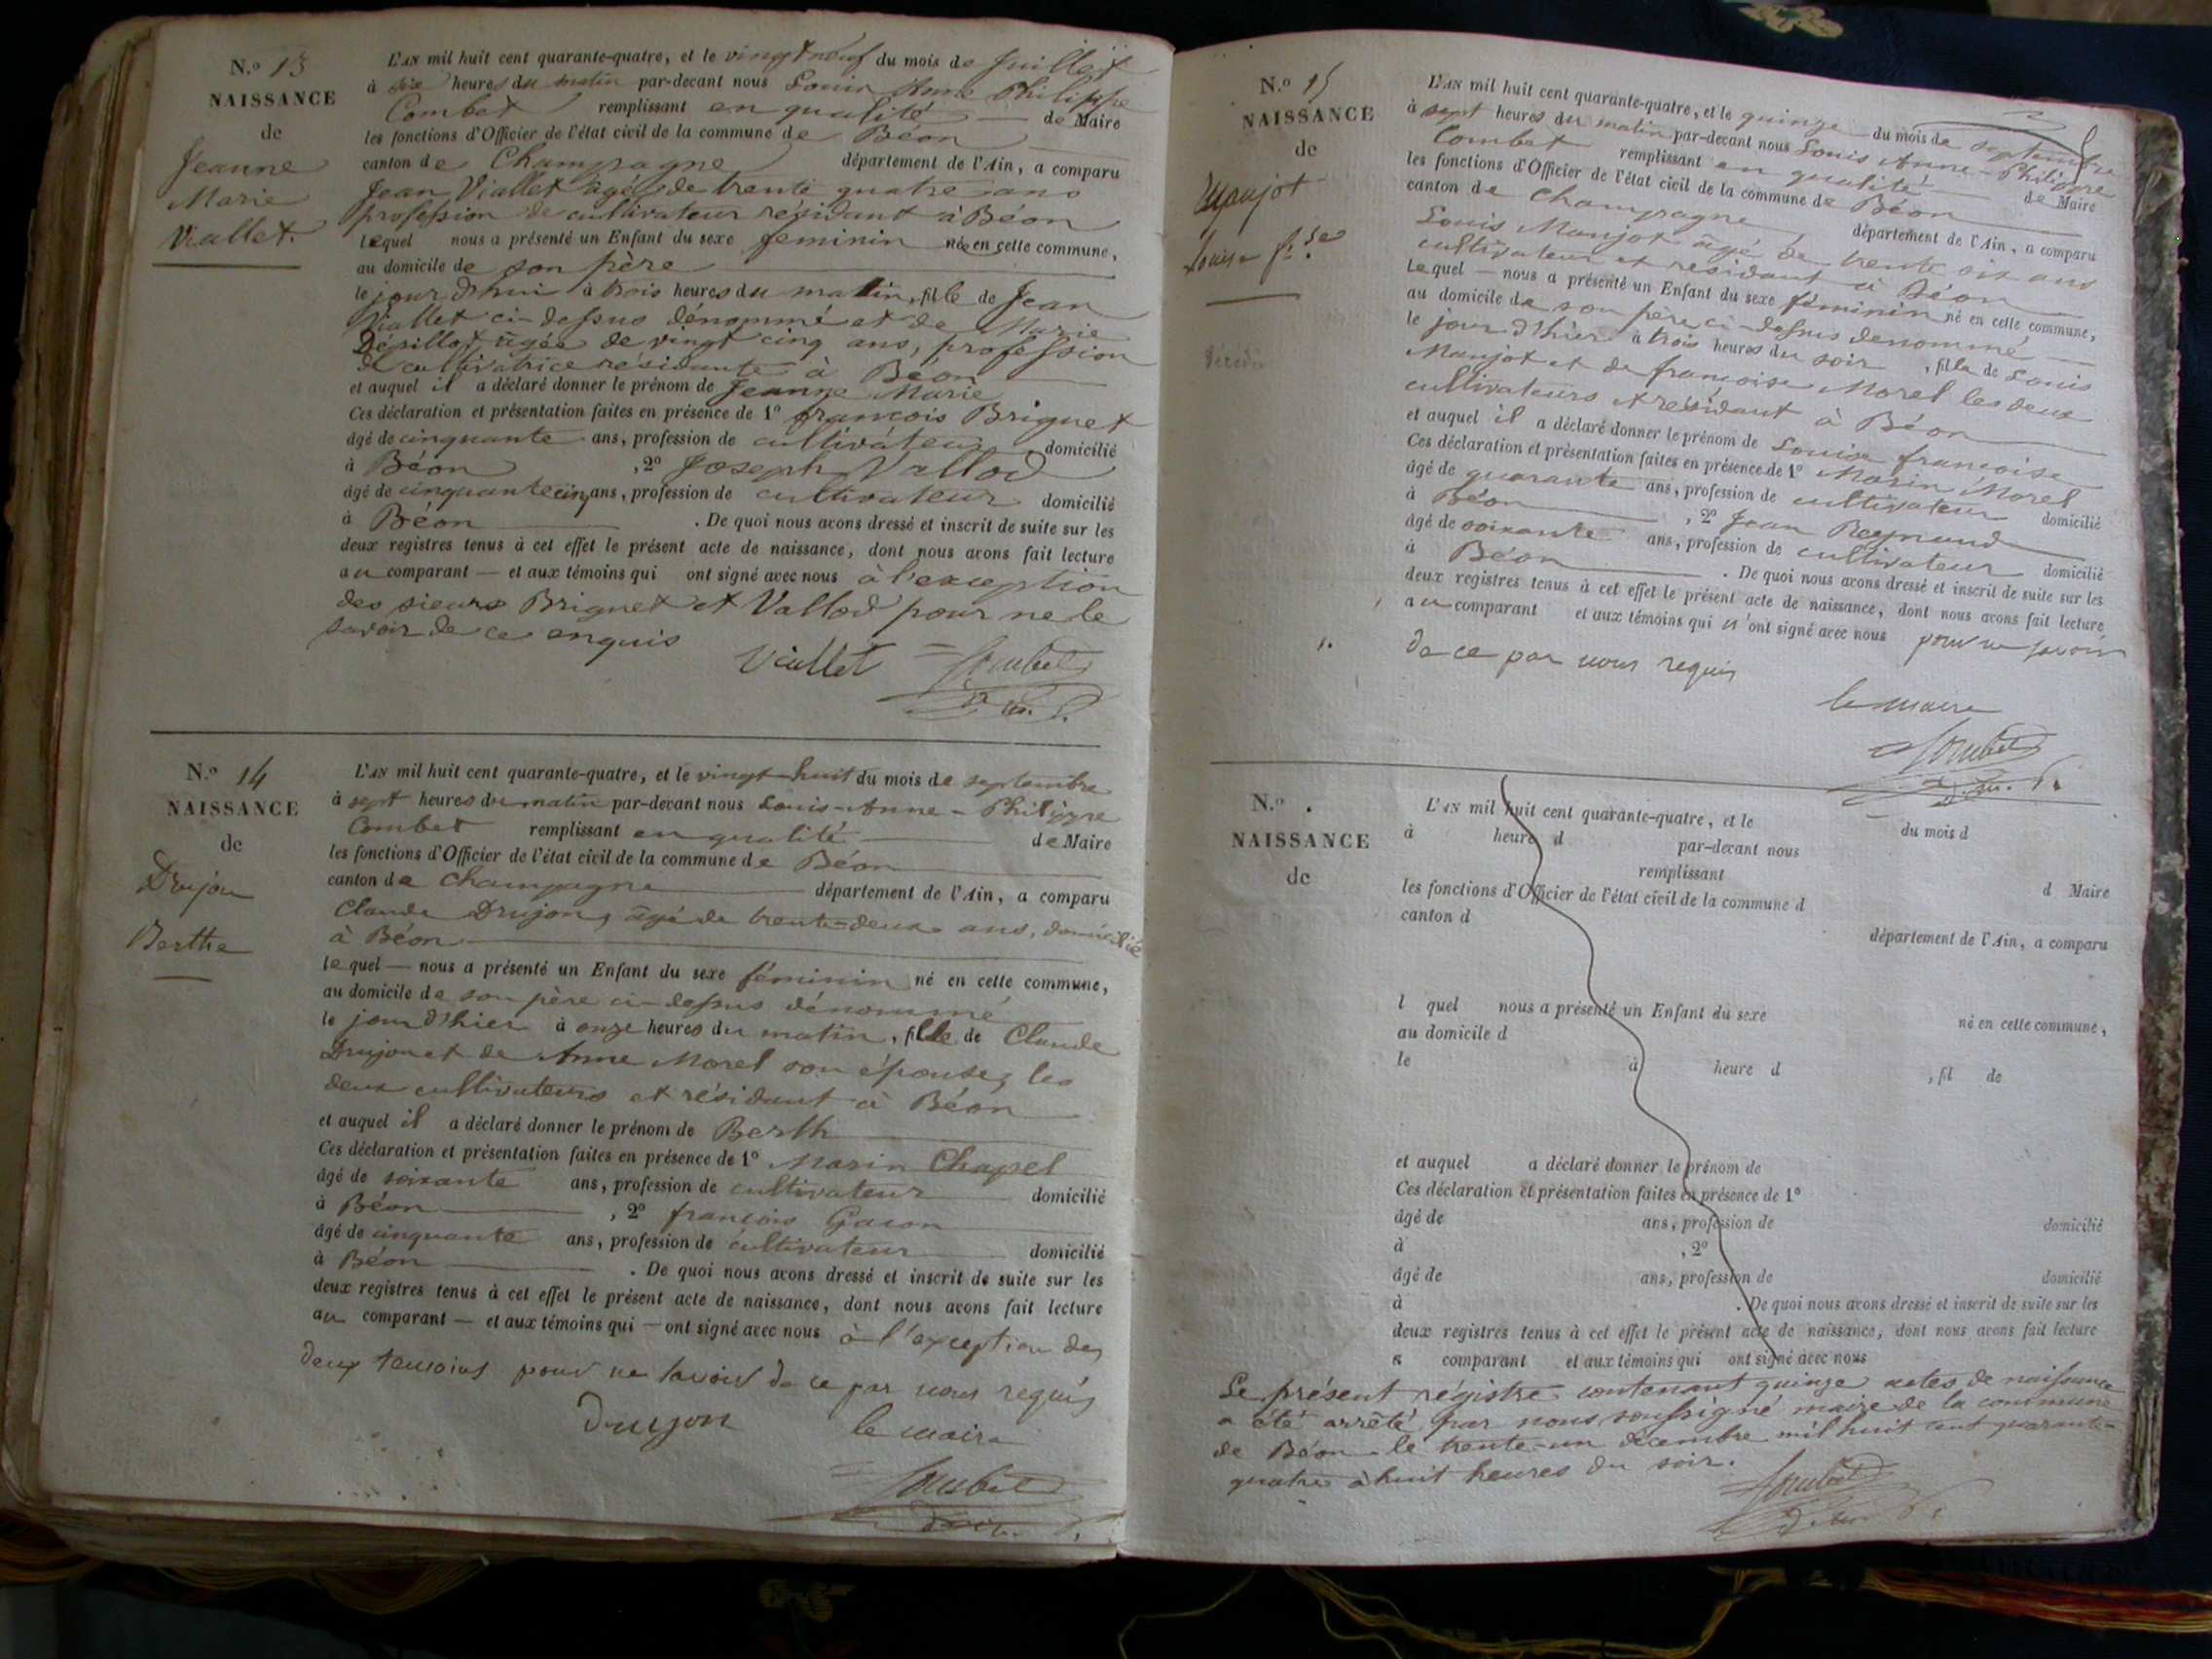 N.o 13
NAISSANCE
de
Jeanne
Marie
Viallet.
L'AN mil huit cent quarante-quatre, et le vingt neuf du mois de Juillet
à six heures du matin par-devant nous Louis Anne Philippe
Combet remplissant en qualité de Maire
les fonctions d'Officier de l'état civil de la commune de Béon
canton de Champagne département de l'Ain, a comparu
Jean Viallet âgé de trente quatre ans
profession de cultivateur résidant à Béon
lequel nous a présenté un Enfant du sexe feminin née en cette commune,
au domicile de son père
le jour d'hui à trois heures du matin, fille de Jean
Viallet ci-dessus dénommé et de Marie
âgée de vingt cinq ans, profession
de cultivatrice résidante à Béon
et auquel il a déclaré donner le prénom de Jeanne Marie
Ces déclaration et présentation faites en présence de 1o françois Briguet
âgé de cinquante ans, profession de cultivateur domicilié
à Béon , 2o Joseph Vallod
âgé de cinquante cinq ans, profession de cultivateur domicilié
à Béon . De quoi nous avons dressé et inscrit de suite sur les
deux registres tenus à cet effet le présent acte de naissance, dont nous avons fait lecture
au comparant — et aux témoins qui ont signé avec nous à l'exception
des sieurs Briguet et Vallod pour ne le
savoir de ce enquis
Viallet Combet
N.o 14
NAISSANCE
de
Drujon
Berthe
L'AN mil huit cent quarante-quatre, et le vingt-huit du mois de septembre
à sept heures du matin par-devant nous Louis-Anne-Philippe
Combet remplissant en qualité de Maire
les fonctions d'Officier de l'état civil de la commune de Béon
canton de Champagne département de l'Ain, a comparu
Claude Drujon, âgé de trente-deux ans, domicilié
à Béon
lequel — nous a présenté un Enfant du sexe féminin né en cette commune,
au domicile de son père ci-dessus dénommé
le jour d'hier à onze heures du matin, fille de Claude
Drujon et de Anne Morel son épouse, les
deux cultivateurs et résidant à Béon
et auquel il a déclaré donner le prénom de Berth
Ces déclaration et présentation faites en présence de 1o Marin Chapel
âgé de soixante ans, profession de cultivateur domicilié
à Béon , 2o françois Gacon
âgé de cinquante ans, profession de cultivateur domicilié
à Béon . De quoi nous avons dressé et inscrit de suite sur les
deux registres tenus à cet effet le présent acte de naissance, dont nous avons fait lecture
au comparant — et aux témoins qui — ont signé avec nous à l'exception des
deux temoins pour ne savoir de ce par nous requis
Drujon le maire
Combet
N.o 15
NAISSANCE
de
Maujot
Louise f.se
Décédée
L'AN mil huit cent quarante-quatre, et le quinze du mois de septembre
à sept heures du matin par-devant nous Louis Anne-Philippe
Combet remplissant en qualité de Maire
les fonctions d'Officier de l'état civil de la commune de Béon
canton de Champagne département de l'Ain, a comparu
Louis Maujot âgé de trente six ans
cultivateur et résidant à Béon
lequel — nous a présenté un Enfant du sexe féminin né en cette commune,
au domicile de son père ci-dessus dénommé
le jour d'hier à trois heures du soir , fille de Louis
Maujot et de françoise Morel les deux
cultivateurs et résidant à Béon
et auquel il a déclaré donner le prénom de Louise françoise
Ces déclaration et présentation faites en présence de 1o Marin Morel
âgé de quarante ans, profession de cultivateur domicilié
à Béon , 2o Jean Reynaud
âgé de soixante ans, profession de cultivateur domicilié
à Béon . De quoi nous avons dressé et inscrit de suite sur les
deux registres tenus à cet effet le présent acte de naissance, dont nous avons fait lecture
au comparant et aux témoins qui n'ont signé avec nous pour ne savoir
de ce par nous requis
le maire
Combet
N.o .
NAISSANCE
de
L'AN mil huit cent quarante-quatre, et le du mois d
à heure d par-devant nous
remplissant d Maire
les fonctions d'Officier de l'état civil de la commune d
canton d département de l'Ain, a comparu
l quel nous a présenté un Enfant du sexe né en cette commune,
au domicile d
le à heure d , fil de
et auquel a déclaré donner le prénom de
Ces déclaration et présentation faites en présence de 1o
âgé de ans, profession de domicilié
à , 2o
âgé de ans, profession de domicilié
à . De quoi nous avons dressé et inscrit de suite sur les
deux registres tenus à cet effet le présent acte de naissance, dont nous avons fait lecture
a comparant et aux témoins qui ont signé avec nous
Le présent régistre contenant quinze actes de naissance
a été arrêté par nous soussigné maire de la commune
de Béon le trente-un décembre mil huit cent quarante-
quatre à huit heures du soir.
Combet